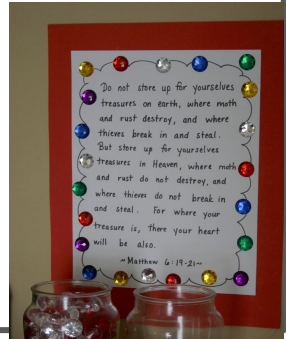 Do not store up for yourselves
treasures on earth, where moth
and rust destroy, and where
thieves break in and steal.
But store up for yourselves
treasures in Heaven, where moth
and rust do not destroy, and
where thieves do not break in
and steal. For where your
treasure is, there your heart
will be also.
~Matthew 6:19-21~